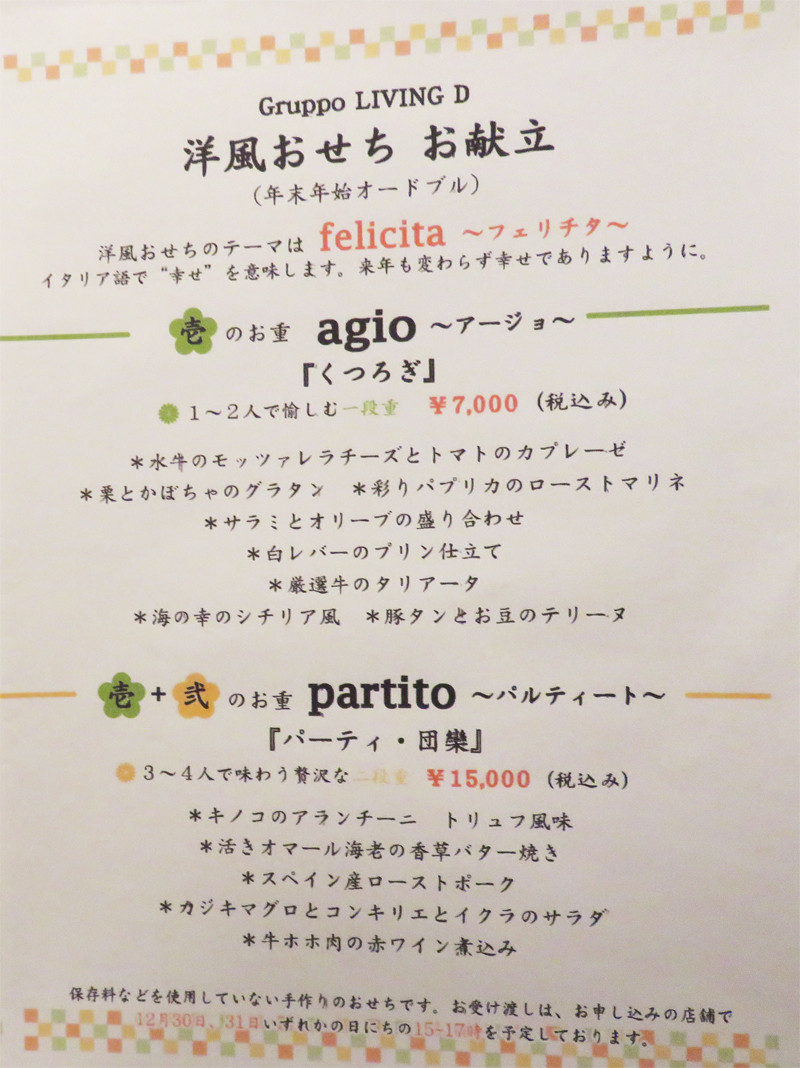 Gruppo LIVING D
洋風おせち お献立
（年末年始オードブル）
洋風おせちのテーマは felicita ～フェリチタ～
イタリア語で“幸せ”を意味します。来年も変わらず幸せでありますように。
壱のお重 agio ～アージョ～
『くつろぎ』
1～2人で愉しむ一段重 ￥7,000 (税込み)
＊水牛のモッツァレラチーズとトマトのカプレーゼ
＊栗とかぼちゃのグラタン ＊彩りパプリカのローストマリネ
＊サラミとオリーブの盛り合わせ
＊白レバーのプリン仕立て
＊厳選牛のタリアータ
＊海の幸のシチリア風 ＊豚タンとお豆のテリーヌ
壱+弐のお重 partito ～パルティート～
『パーティ・団欒』
3～4人で味わう贅沢な二段重 ￥15,000 (税込み)
＊キノコのアランチーニ トリュフ風味
＊活きオマール海老の香草バター焼き
＊スペイン産ローストポーク
＊カジキマグロとコンキリエとイクラのサラダ
＊牛ホホ肉の赤ワイン煮込み
保存料などを使用していない手作りのおせちです。お受け渡しは、お申し込みの店舗で
12月30日、31日いずれかの日にちの15-17時を予定しております。